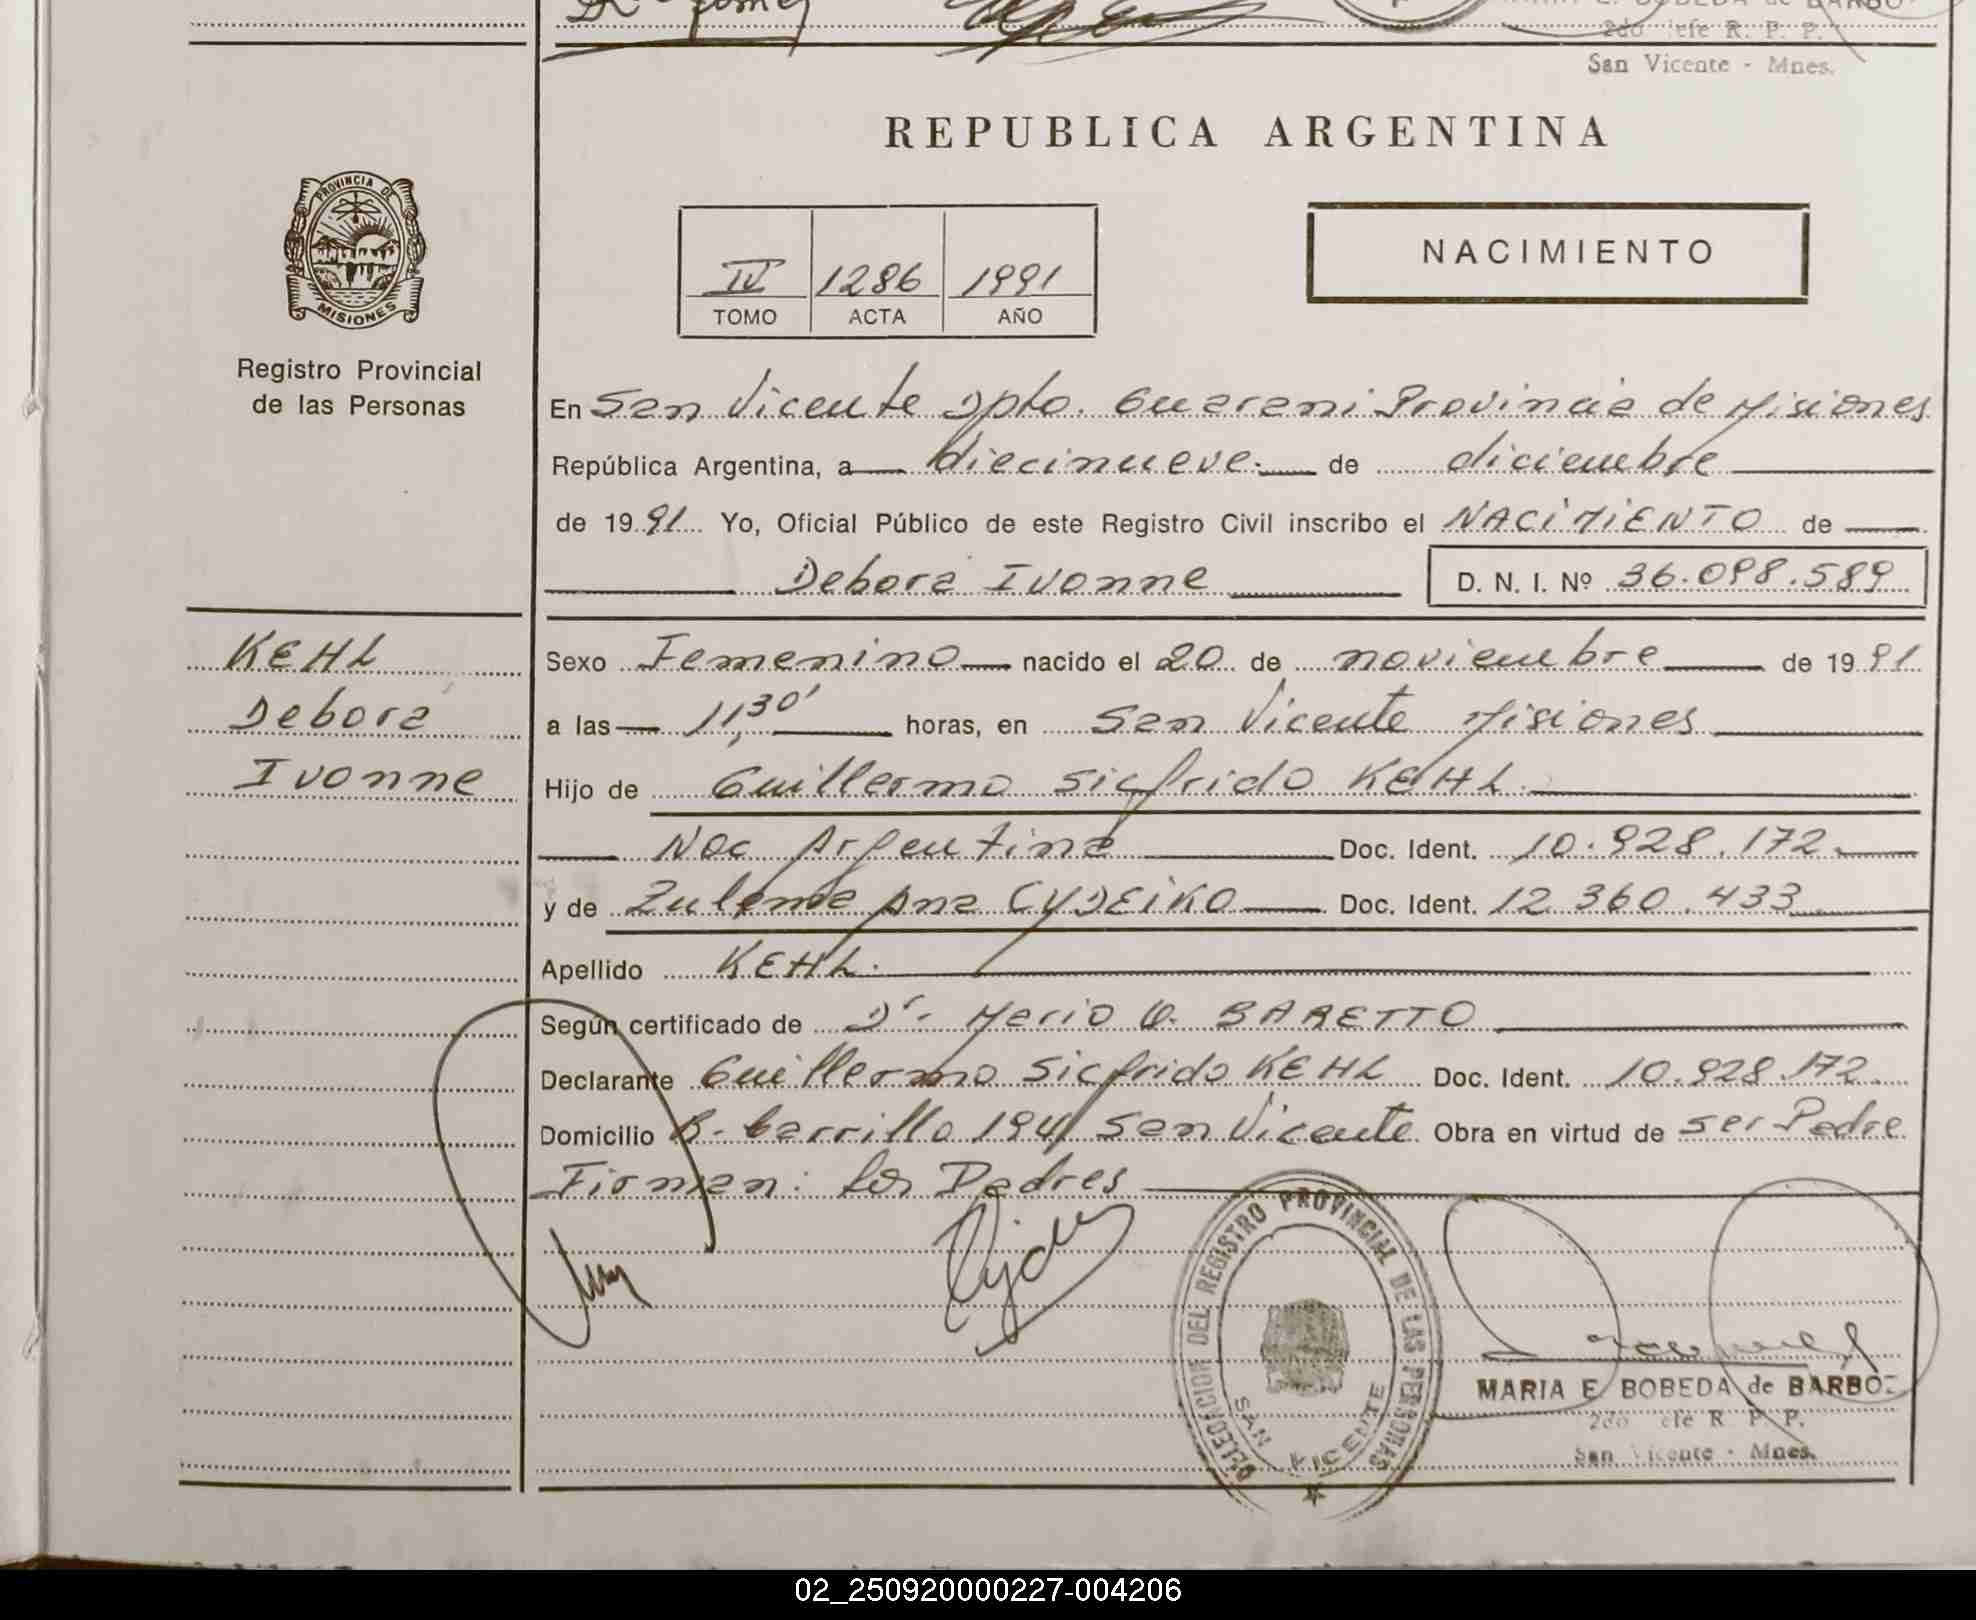 MARIA E. BOBEDA de BARBO
2do Jefe R. P. P.
San Vicente - Mnes.
REPUBLICA ARGENTINA
PROVINCIA DE
MISIONES
Registro Provincial
de las Personas
IV 1286 1991
TOMO ACTA AÑO
NACIMIENTO
En San Vicente Dpto. Guarani Provincia de Misiones
República Argentina, a diecinueve de diciembre
de 1991 Yo, Oficial Público de este Registro Civil inscribo el NACIMIENTO de
Debora Ivonne D. N. I. Nº 36.098.589
KEHL
Debora
Ivonne
Sexo Femenino nacido el 20 de noviembre de 1991
a las 11,30' horas, en San Vicente Misiones
Hijo de Guillermo Sicfrido KEHL
Nac Argentina Doc. Ident. 10.928.172.
y de Zulema Ana CYDEIKO Doc. Ident. 12 360.433
Apellido KEHL.
Según certificado de Dr. Mario O. BARETTO
Declarante Guillermo Sicfrido KEHL Doc. Ident. 10.928.172.
Domicilio B. Carrillo 194 San Vicente Obra en virtud de ser Padre
Firman: los Padres
DELEGACION DEL REGISTRO PROVINCIAL DE LAS PERSONAS
SAN VICENTE
MARIA E BOBEDA de BARBO
2do Jefe R. P. P.
San Vicente - Mnes.
02_250920000227-004206